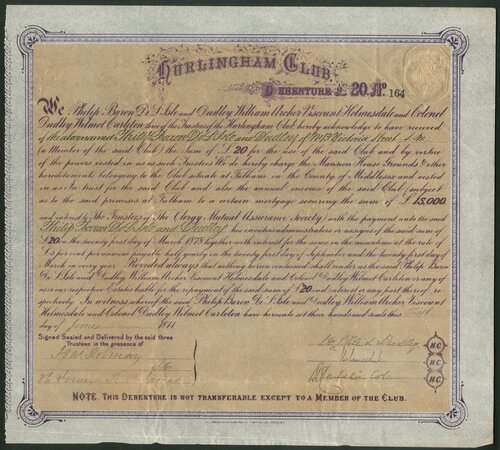 HURLINGHAM CLUB
DEBENTURE £20. No 164
We Philip Baron De L'Isle and Dudley William Archer Viscount Holmesdale and Colonel
Dudley Wilmot Carleton three of the Trustees of the Hurlingham Club hereby acknowledge to have received
of Philip Baron De L'Isle and Dudley of
a Member of the said Club the Sum of £20 for the use of the said Club and by virtue
of the powers vested in us as such Trustees We do hereby charge the Mansion House Grounds & other
hereditaments belonging to the Club situate at Fulham in the County of Middlesex and vested
in us In trust for the said Club and also the annual income of the said Club subject
as to the said premises at Fulham to a certain mortgage securing the sum of £15,000
and interest to the Trustees of The Clergy Mutual Assurance Society with the payment unto the said
Philip Baron De L'Isle and Dudley his executors administrators or assigns of the said sum of
£20 on the twenty first day of March 1878 together with interest for the same in the meantime at the rate of
£5 per cent per annum payable half yearly on the twenty first day of September and the twenty first day of
March in every year Provided always that nothing herein contained shall render us the said Philip Baron
De L'Isle and Dudley William Archer Viscount Holmesdale and Colonel Dudley Wilmot Carleton or any of
us or our respective Estates liable for the repayment of the said sum of £20 and interest or any part thereof re-
spectively. In witness whereof the said Philip Baron De L'Isle and Dudley William Archer Viscount
Holmesdale and Colonel Dudley Wilmot Carleton have hereunto set their hands and seals this
day of June 1871
Signed Sealed and Delivered by the said three
Trustees in the presence of
De L'Isle & Dudley
Holmesdale
H.C.
H.C.
H.C.
NOTE. THIS DEBENTURE IS NOT TRANSFERABLE EXCEPT TO A MEMBER OF THE CLUB.